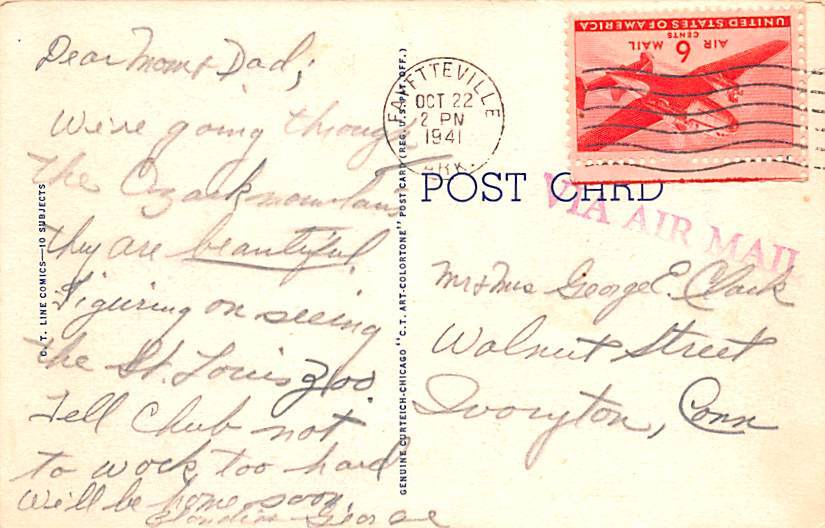 Dear Mom & Dad,
We're going through
the Ozark mountains
they are beautiful.
Figuring on seeing
the St. Louis Zoo.
Tell Chub not
to work too hard
We'll be home soon.
Claudine George
C. T. LINE COMICS—10 SUBJECTS
GENUINE CURTEICH-CHICAGO "C.T. ART-COLORTONE" POST CARD (REG. U.S. PAT. OFF.)
FAYETTEVILLE
OCT 22
2 PM
1941
ARK.
UNITED STATES OF AMERICA
6 CENTS
AIR MAIL
POST CARD
VIA AIR MAIL
Mr & Mrs George E. Clark
Walnut Street
Ivoryton, Conn